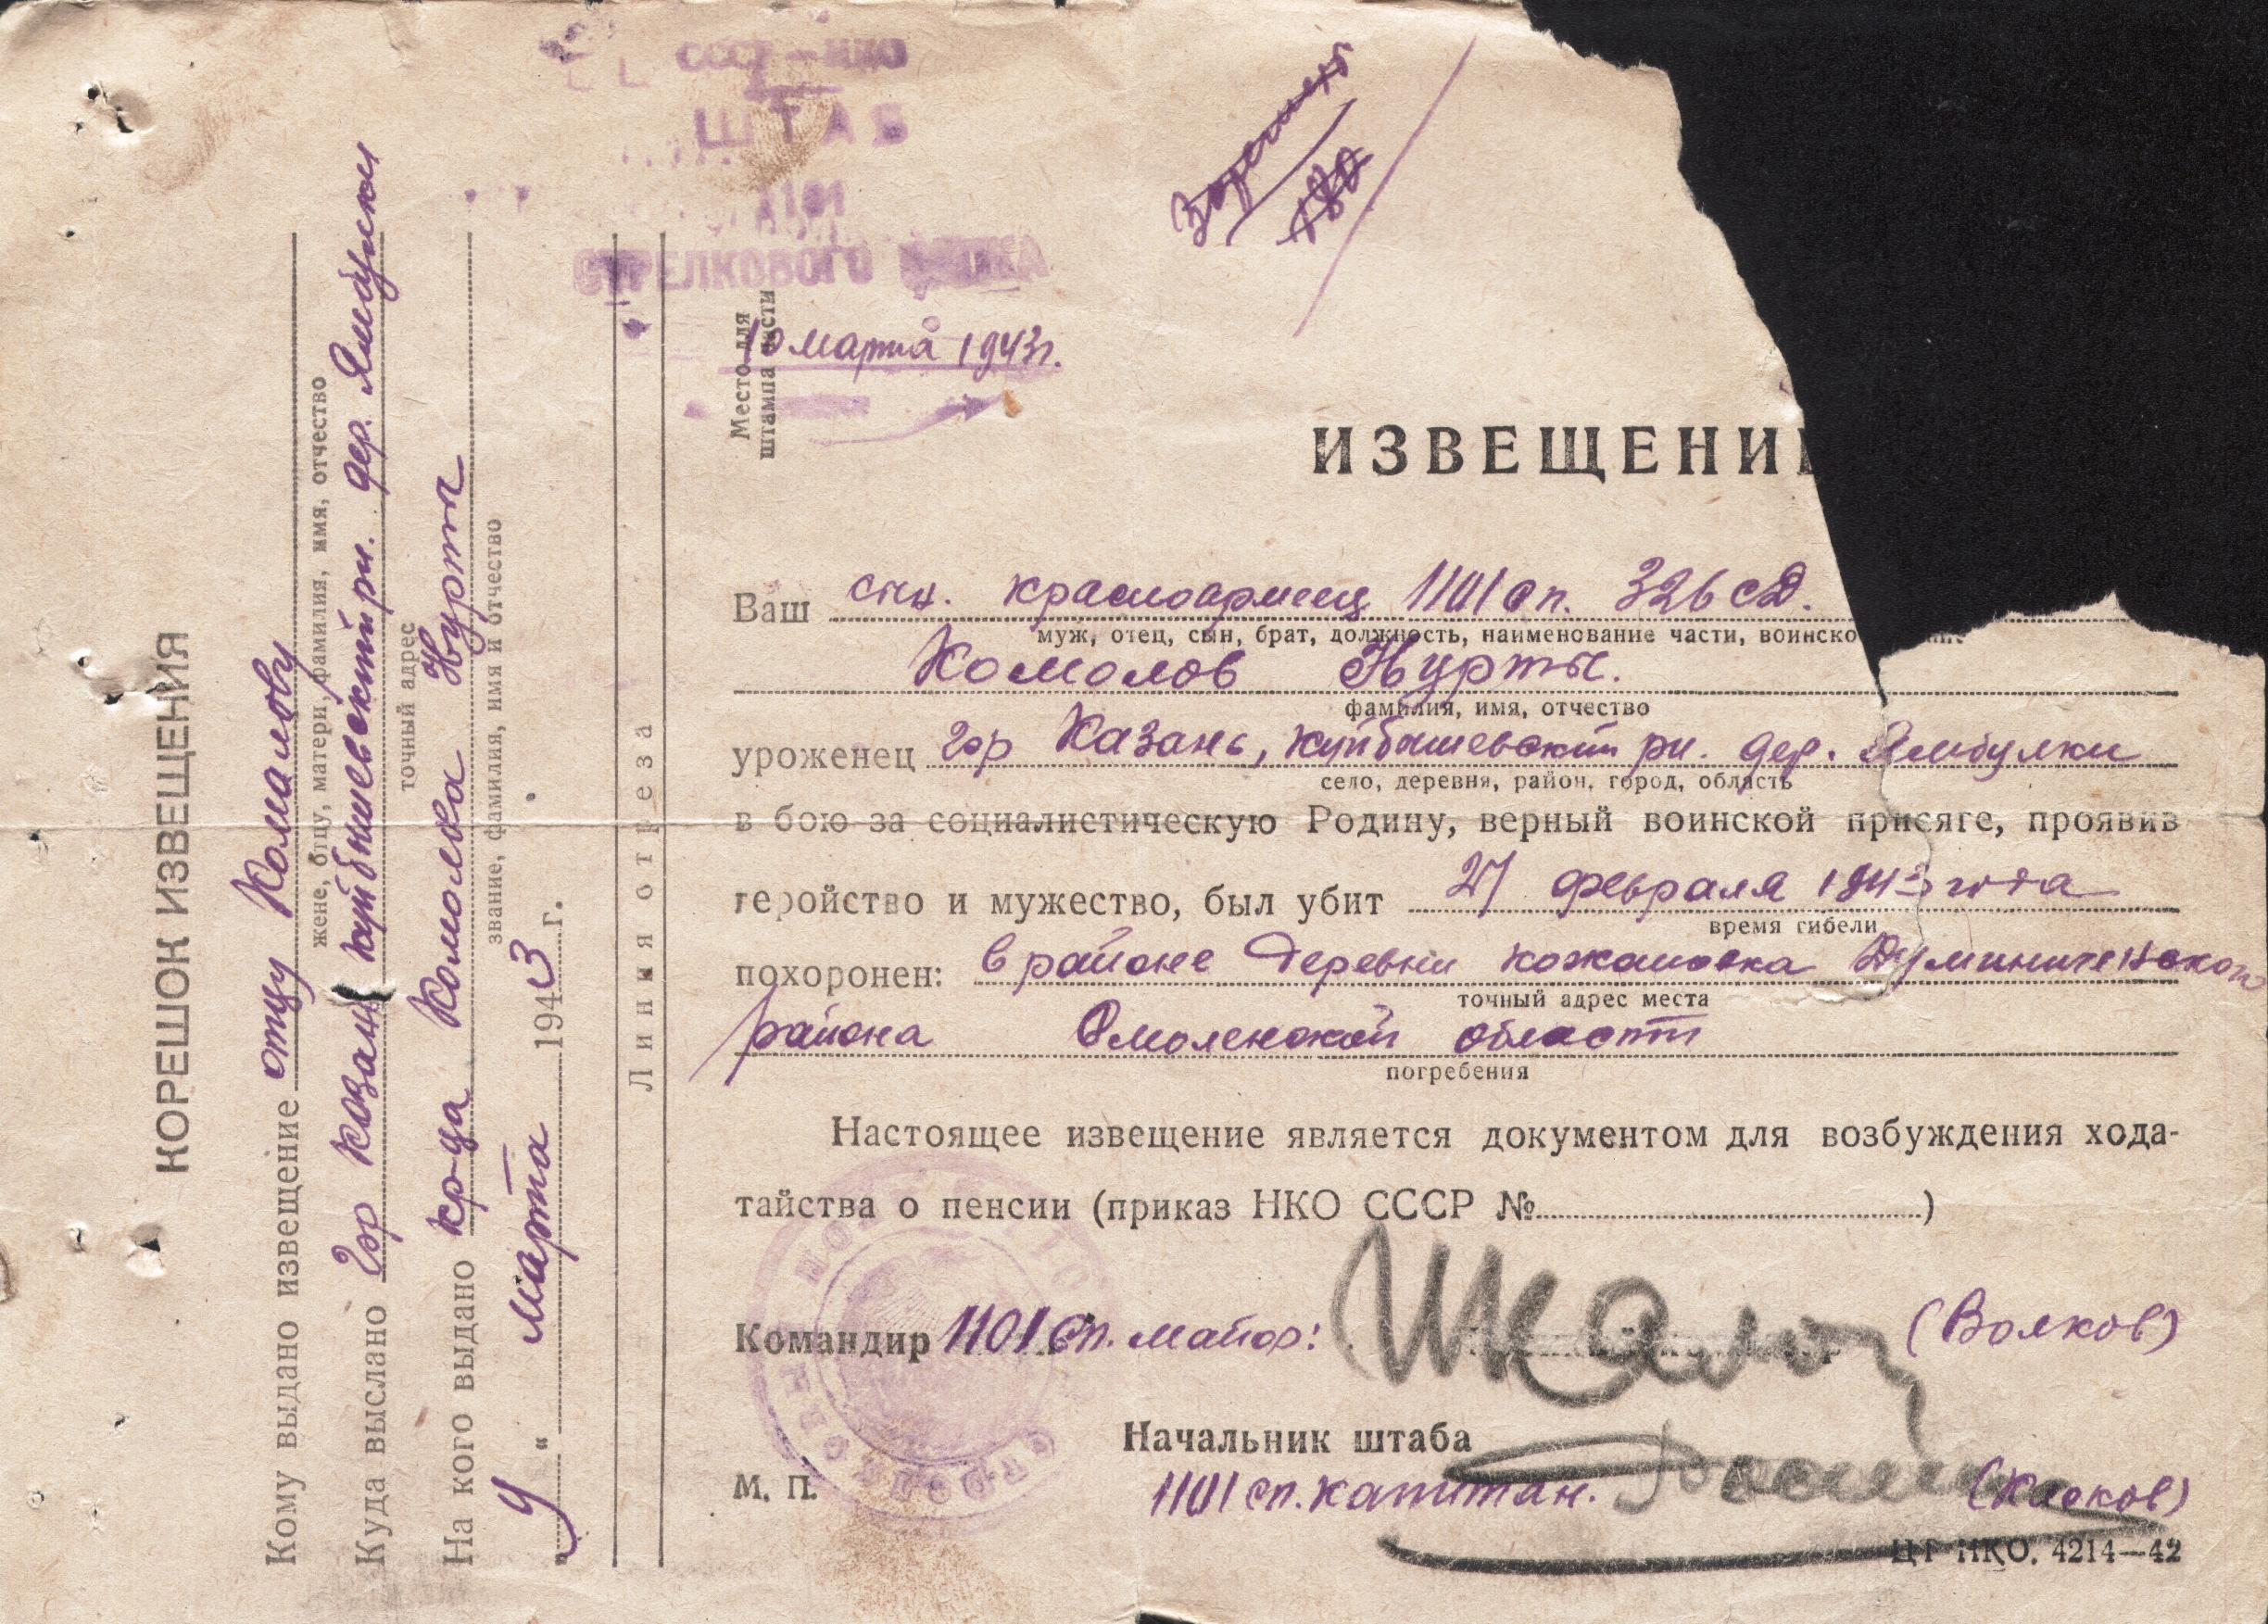 КОРЕШОК ИЗВЕЩЕНИЯ
Кому выдано извещение отцу Комалову
жене, отцу, матери, фамилия, имя, отчество
Куда выслано гор Козань куйбышевский рн. дер. Ямбулки
точный адрес
На кого выдано кр-ца Комолова Нурты
звание, фамилия, имя и отчество
" " марта 1943 г.
Линия отреза
СССР — НКО
ШТАБ
1101
СТРЕЛКОВОГО ПОЛКА
Место для
штампа части
10 марта 1943г.
ИЗВЕЩЕНИ
Ваш сын. красноармеец 1101 сп. 326 сд.
муж, отец, сын, брат, должность, наименование части, воинско
Комолов Нурты.
фамилия, имя, отчество
уроженец гор Казань, куйбышевский рн. дер. Ямбулки
село, деревня, район, город, область
в бою за социалистическую Родину, верный воинской присяге, проявив
геройство и мужество, был убит 27 февраля 1943 года
время гибели
похоронен: в районе деревни кожановка Думиниченского
точный адрес места
района Смоленской области
погребения
Настоящее извещение является документом для возбуждения хода-
тайства о пенсии (приказ НКО СССР № )
Командир 1101 сп. майор: (Волков)
Начальник штаба
М. П. 1101 сп. капитан. (Касков)
ЦТ НКО. 4214—42